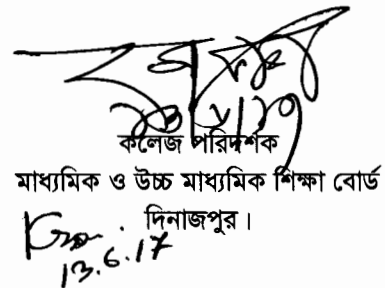 ১৩/৬/১৭
কলেজ পরিদর্শক
মাধ্যমিক ও উচ্চ মাধ্যমিক শিক্ষা বোর্ড
দিনাজপুর।
13.6.17